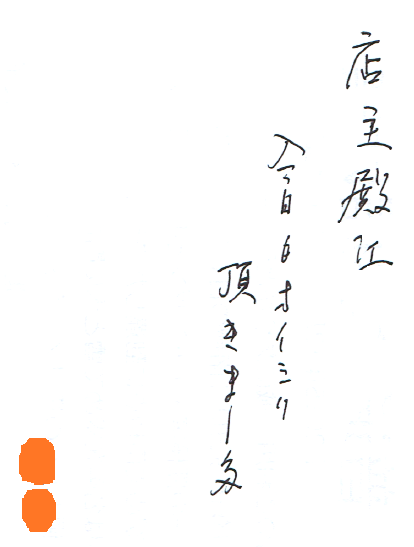 店主殿江
今日もオイシク
頂きました